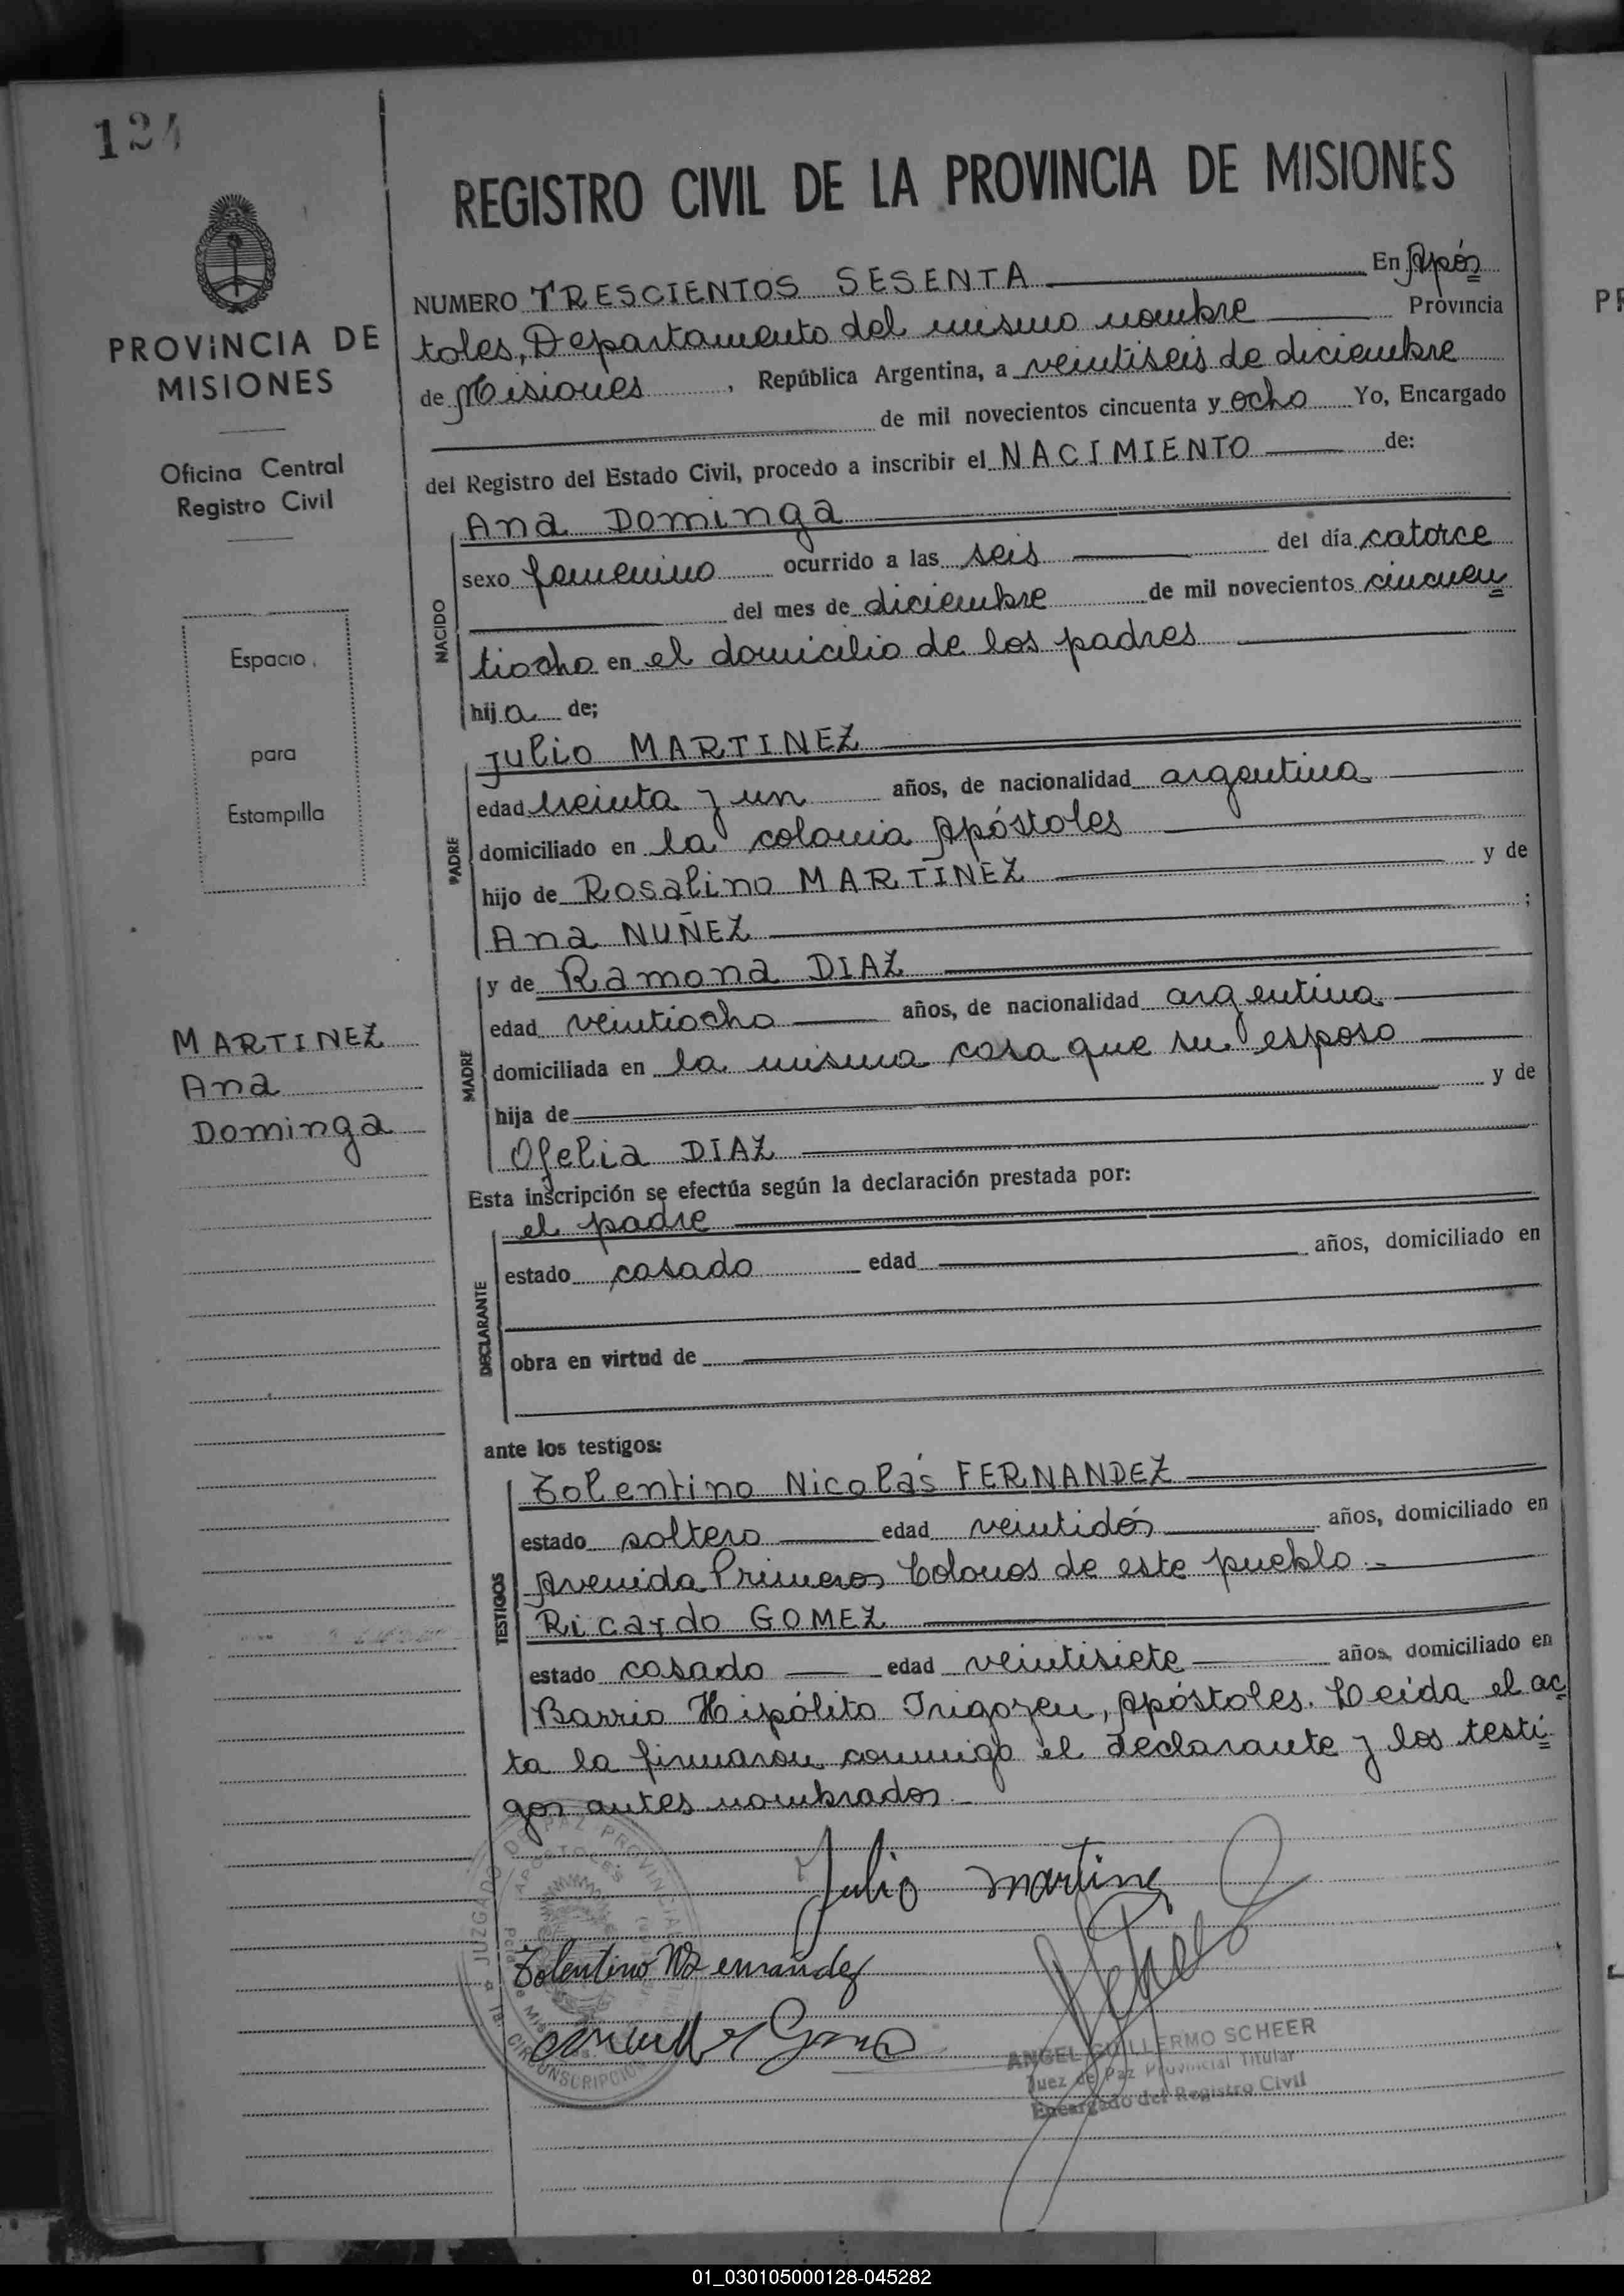 124
REGISTRO CIVIL DE LA PROVINCIA DE MISIONES
PROVINCIA DE
MISIONES
Oficina Central
Registro Civil
Espacio
para
Estampilla
MARTINEZ
Ana
Dominga
NUMERO TRESCIENTOS SESENTA En Após
toles, Departamento del mismo nombre Provincia
de Misiones, República Argentina, a veintiseis de diciembre
de mil novecientos cincuenta y ocho Yo, Encargado
del Registro del Estado Civil, procedo a inscribir el NACIMIENTO de:
NACIDO
Ana Dominga
sexo femenino ocurrido a las seis del día catorce
del mes de diciembre de mil novecientos cincuen
tiocho en el domicilio de los padres
hija de;
PADRE
Julio MARTINEZ
edad treinta y un años, de nacionalidad argentina
domiciliado en la colonia Apóstoles
hijo de Rosalino MARTINEZ y de
Ana NUÑEZ ;
MADRE
y de Ramona DIAZ
edad veintiocho años, de nacionalidad argentina
domiciliada en la misma casa que su esposo
hija de y de
Ofelia DIAZ
Esta inscripción se efectúa según la declaración prestada por:
DECLARANTE
el padre
estado casado edad años, domiciliado en
obra en virtud de
ante los testigos:
TESTIGOS
Tolentino Nicolás FERNANDEZ
estado soltero edad veintidós años, domiciliado en
Avenida Primeros Colonos de este pueblo.-
Ricardo GOMEZ
estado casado edad veintisiete años, domiciliado en
Barrio Hipólito Irigoyen, Apóstoles. Leída el ac
ta la firmaron conmigo el declarante y los testi
gos antes nombrados.-
JUZGADO DE PAZ PROVINCIAL
APOSTOLES
CIRCUNSCRIPCION
Julio Martine
Tolentino
ANGEL GUILLERMO SCHEER
Juez de Paz Provincial Titular
Encargado del Registro Civil
01_030105000128-045282